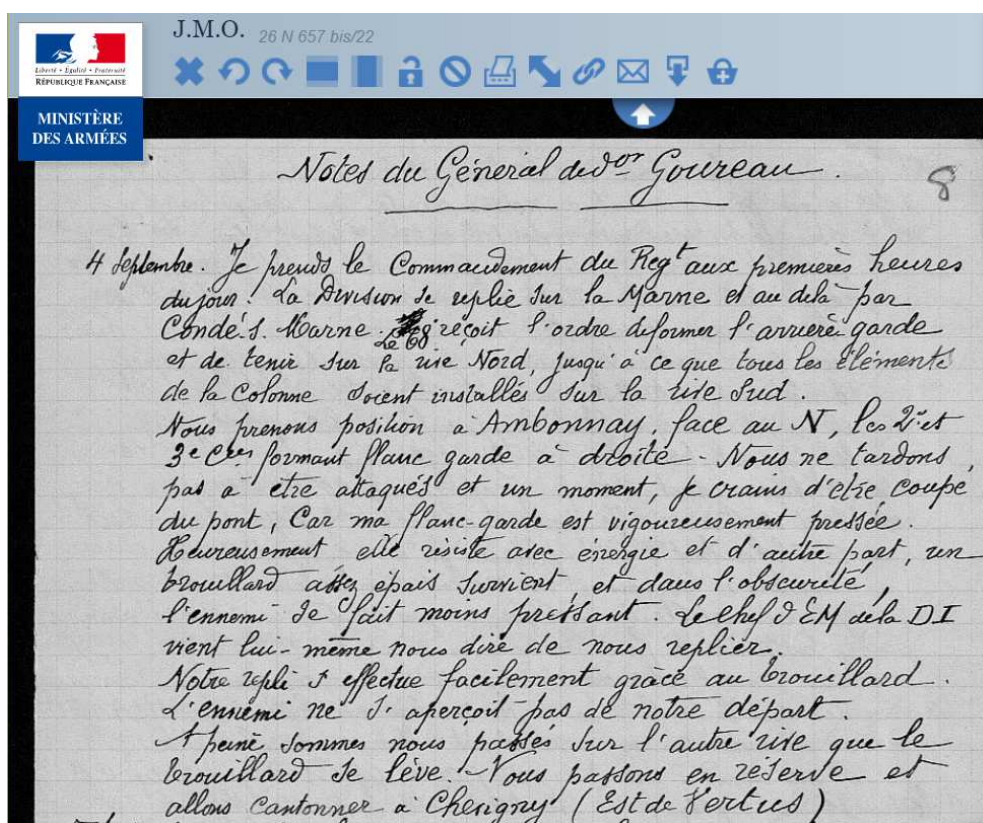 J.M.O. 26 N 657 bis/22
Liberté • Égalité • Fraternité
RÉPUBLIQUE FRANÇAISE
MINISTÈRE
DES ARMÉES
Notes du Général de don Goureau.
8
4 Septembre. Je prends le Commandement du Regt aux premières heures
du jour. La Division se replie sur la Marne et au delà par
Condé s. Marne. Le 68 reçoit l'ordre de former l'arrière garde
et de tenir sur la rive Nord, jusqu'à ce que tous les éléments
de la Colonne soient installés sur la rive Sud.
Nous prenons position à Ambonnay, face au N, les 2e et
3e Cies formant flanc garde à droite - Nous ne tardons
pas à être attaqués et un moment, je crains d'être coupé
du pont, car ma flanc-garde est vigoureusement pressée.
Heureusement elle résiste avec énergie et d'autre part, un
brouillard assez épais survient, et dans l'obscurité,
l'ennemi se fait moins pressant. Le chef d'EM de la DI
vient lui-même nous dire de nous replier.
Notre repli s'effectue facilement grâce au brouillard.
L'ennemi ne s'aperçoit pas de notre départ.
A peine sommes nous passés sur l'autre rive que le
brouillard se lève. Nous passons en réserve et
allons cantonner à Cherigny (Est de Vertus)